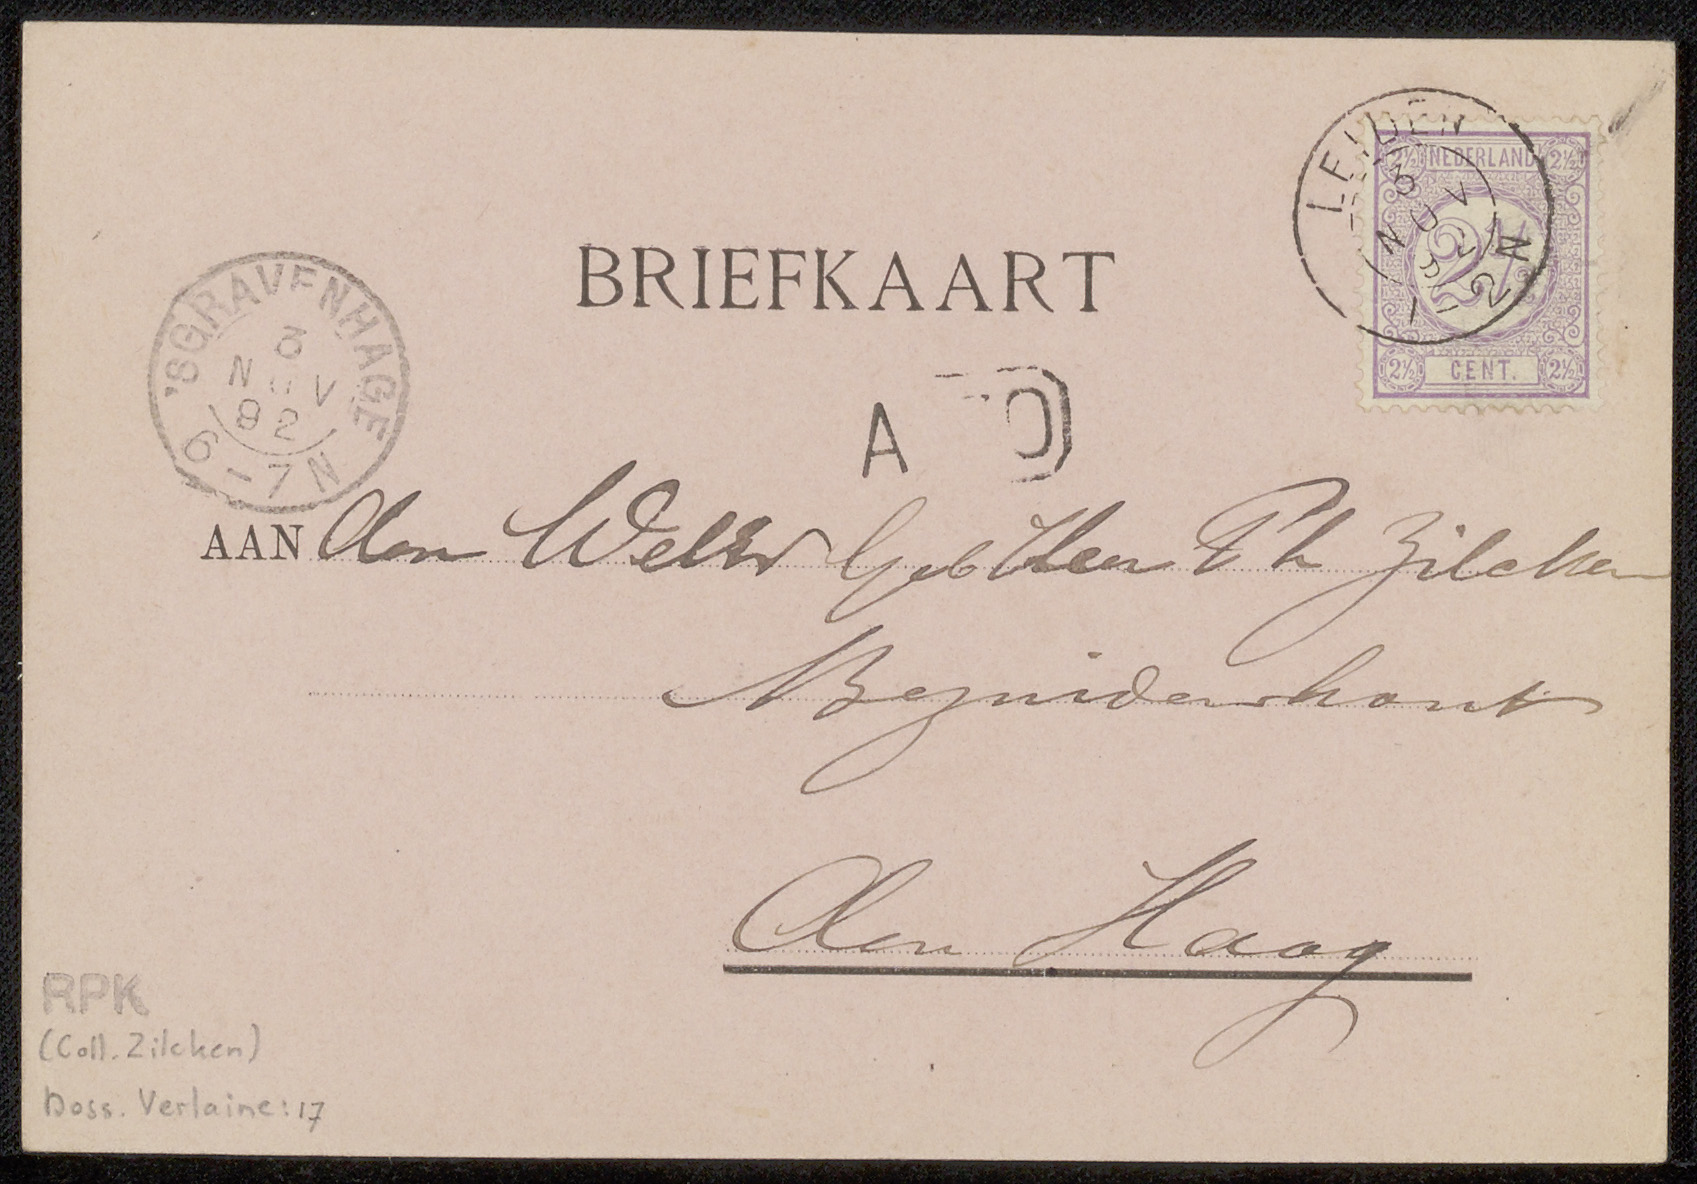 LEIDEN
3 NOV 92
1-2N
2½ NEDERLAND 2½
2½
2½ CENT. 2½
BRIEFKAART
'SGRAVENHAGE
3
NOV
92
6-7N
A
D
AAN den WelEd Geb Heer Ph Zilcken
Bezuidenhout
den Haag
RPK
(Coll. Zilcken)
Doss. Verlaine: 17